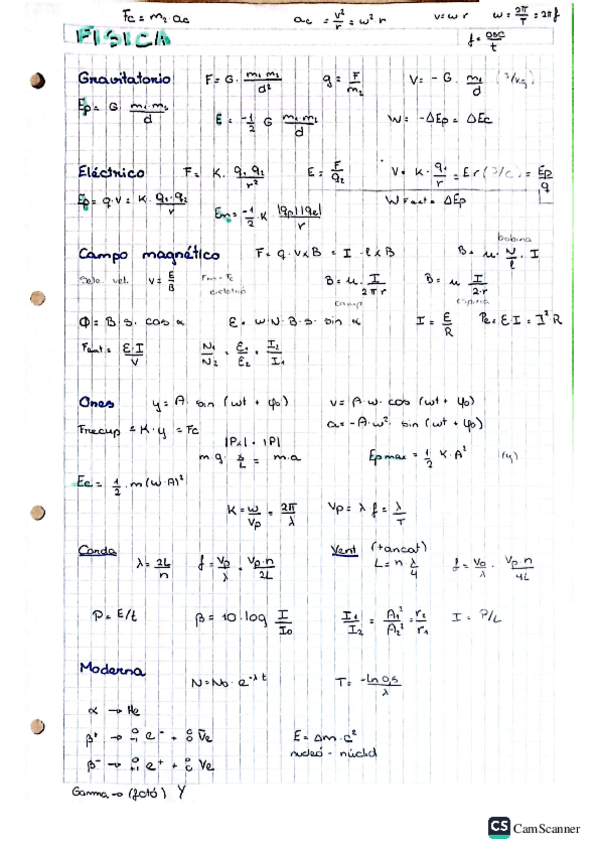 Fc = m₂ ac    ac = v²/r = ω² r    v = ω r    ω = 2π/T = 2πf
FISICA    f = osc/t
Gravitatorio    F = G · m₁ m₂/d²    g = F/m₂    V = - G · m₁/d (J/kg)
Ep = G · m₁ · m₂/d    E = -1/2 G m₁ m₂/d    W = -ΔEp = ΔEc
Eléctrico    F = K · q₁ q₂/r²    E = F/q₂    V = K · q₁/r = E r (J/C) = Ep/q
Ep = q · V = K · q₁ · q₂/r    Em = -1/2 K |qp| |qe|/r    W Fext = ΔEp
bobina
Campo magnético    F = q · V x B = I · l x B    B = μ · N/l · I
Sele. vel.    v = E/B    Fm = Fc    B = μ · I/2πr    B = μ I/2·r
espira
Φ = B · s · cos α    E = W · N · B · s · sin α    I = E/R    Pe = E · I = I² R
Fant = E·I/V    N₁/N₂ = E₁/E₂ = I₂/I₁
Ones    y = A · sin (ωt + φ₀)    v = A · ω · cos (ωt + φ₀)
Frecup = K · y = Fc    a = -A · ω² · sin (ωt + φ₀)
|Px| = |P|
m · g · s/L = m · a    Ep max = 1/2 K · A² (y)
Ec = 1/2 · m (ω · A)²
K = ω/Vp = 2π/λ    Vp = λ f = λ/T
Corda    λ = 2L/n    f = Vp/λ = Vp · n/2L    Vent (tancat)    L = n · λ/4    f = Vp/λ = Vp · n/4L
P = E/t    β = 10 · log I/I₀    I₁/I₂ = A₁²/A₂² = r₂/r₁    I = P/L
Moderna    N = N₀ · e^-λt    T = -ln 0,5/λ
α → He
β⁺ → ⁰₋₁ e⁻ + ⁰₀ V̄e    E = Δm · c²
nucleó - núclid
β⁻ → ⁰₋₁ e⁺ + ⁰₀ Ve
Gamma → (fotó) γ
CS CamScanner